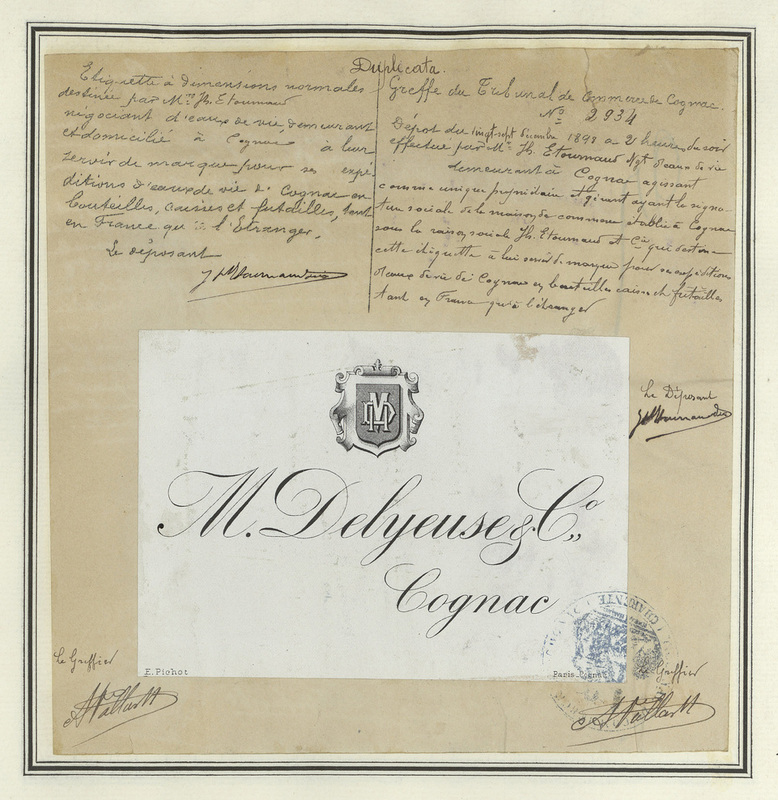 Duplicata.
Etiquette à dimensions normales
destinée par Mr. Jh. Etournaud
négociant d'eaux de vie demeurant
et domicilié à Cognac à leur
servir de marque pour ses expé
ditions d'eaux de vie de Cognac en
bouteilles, caisses et futailles, tant
en France qu'à l'Etranger.
Le déposant
Greffe du Tribunal de Commerce de Cognac.
No 2934
Dépôt du vingt-sept décembre 1899 a 2 heures du soir
effectué par Mr. Jh. Etournaud Ngt d'eaux de vie
demeurant à Cognac agissant
comme unique propriétaire et gérant ayant la signa
ture sociale de la maison de commerce établie à Cognac
sous la raison sociale Jh. Etournaud et Cie qui destine
cette étiquette à lui servir de marque pour ses expéditions
d'eaux de vie de Cognac en bouteilles caisses et futailles
tant en France qu'à l'étranger
Le Déposant
MD
M. Delyeuse & Co.,
Cognac
E. Pichot
Paris
CHARENTE
Le Greffier
Le Greffier